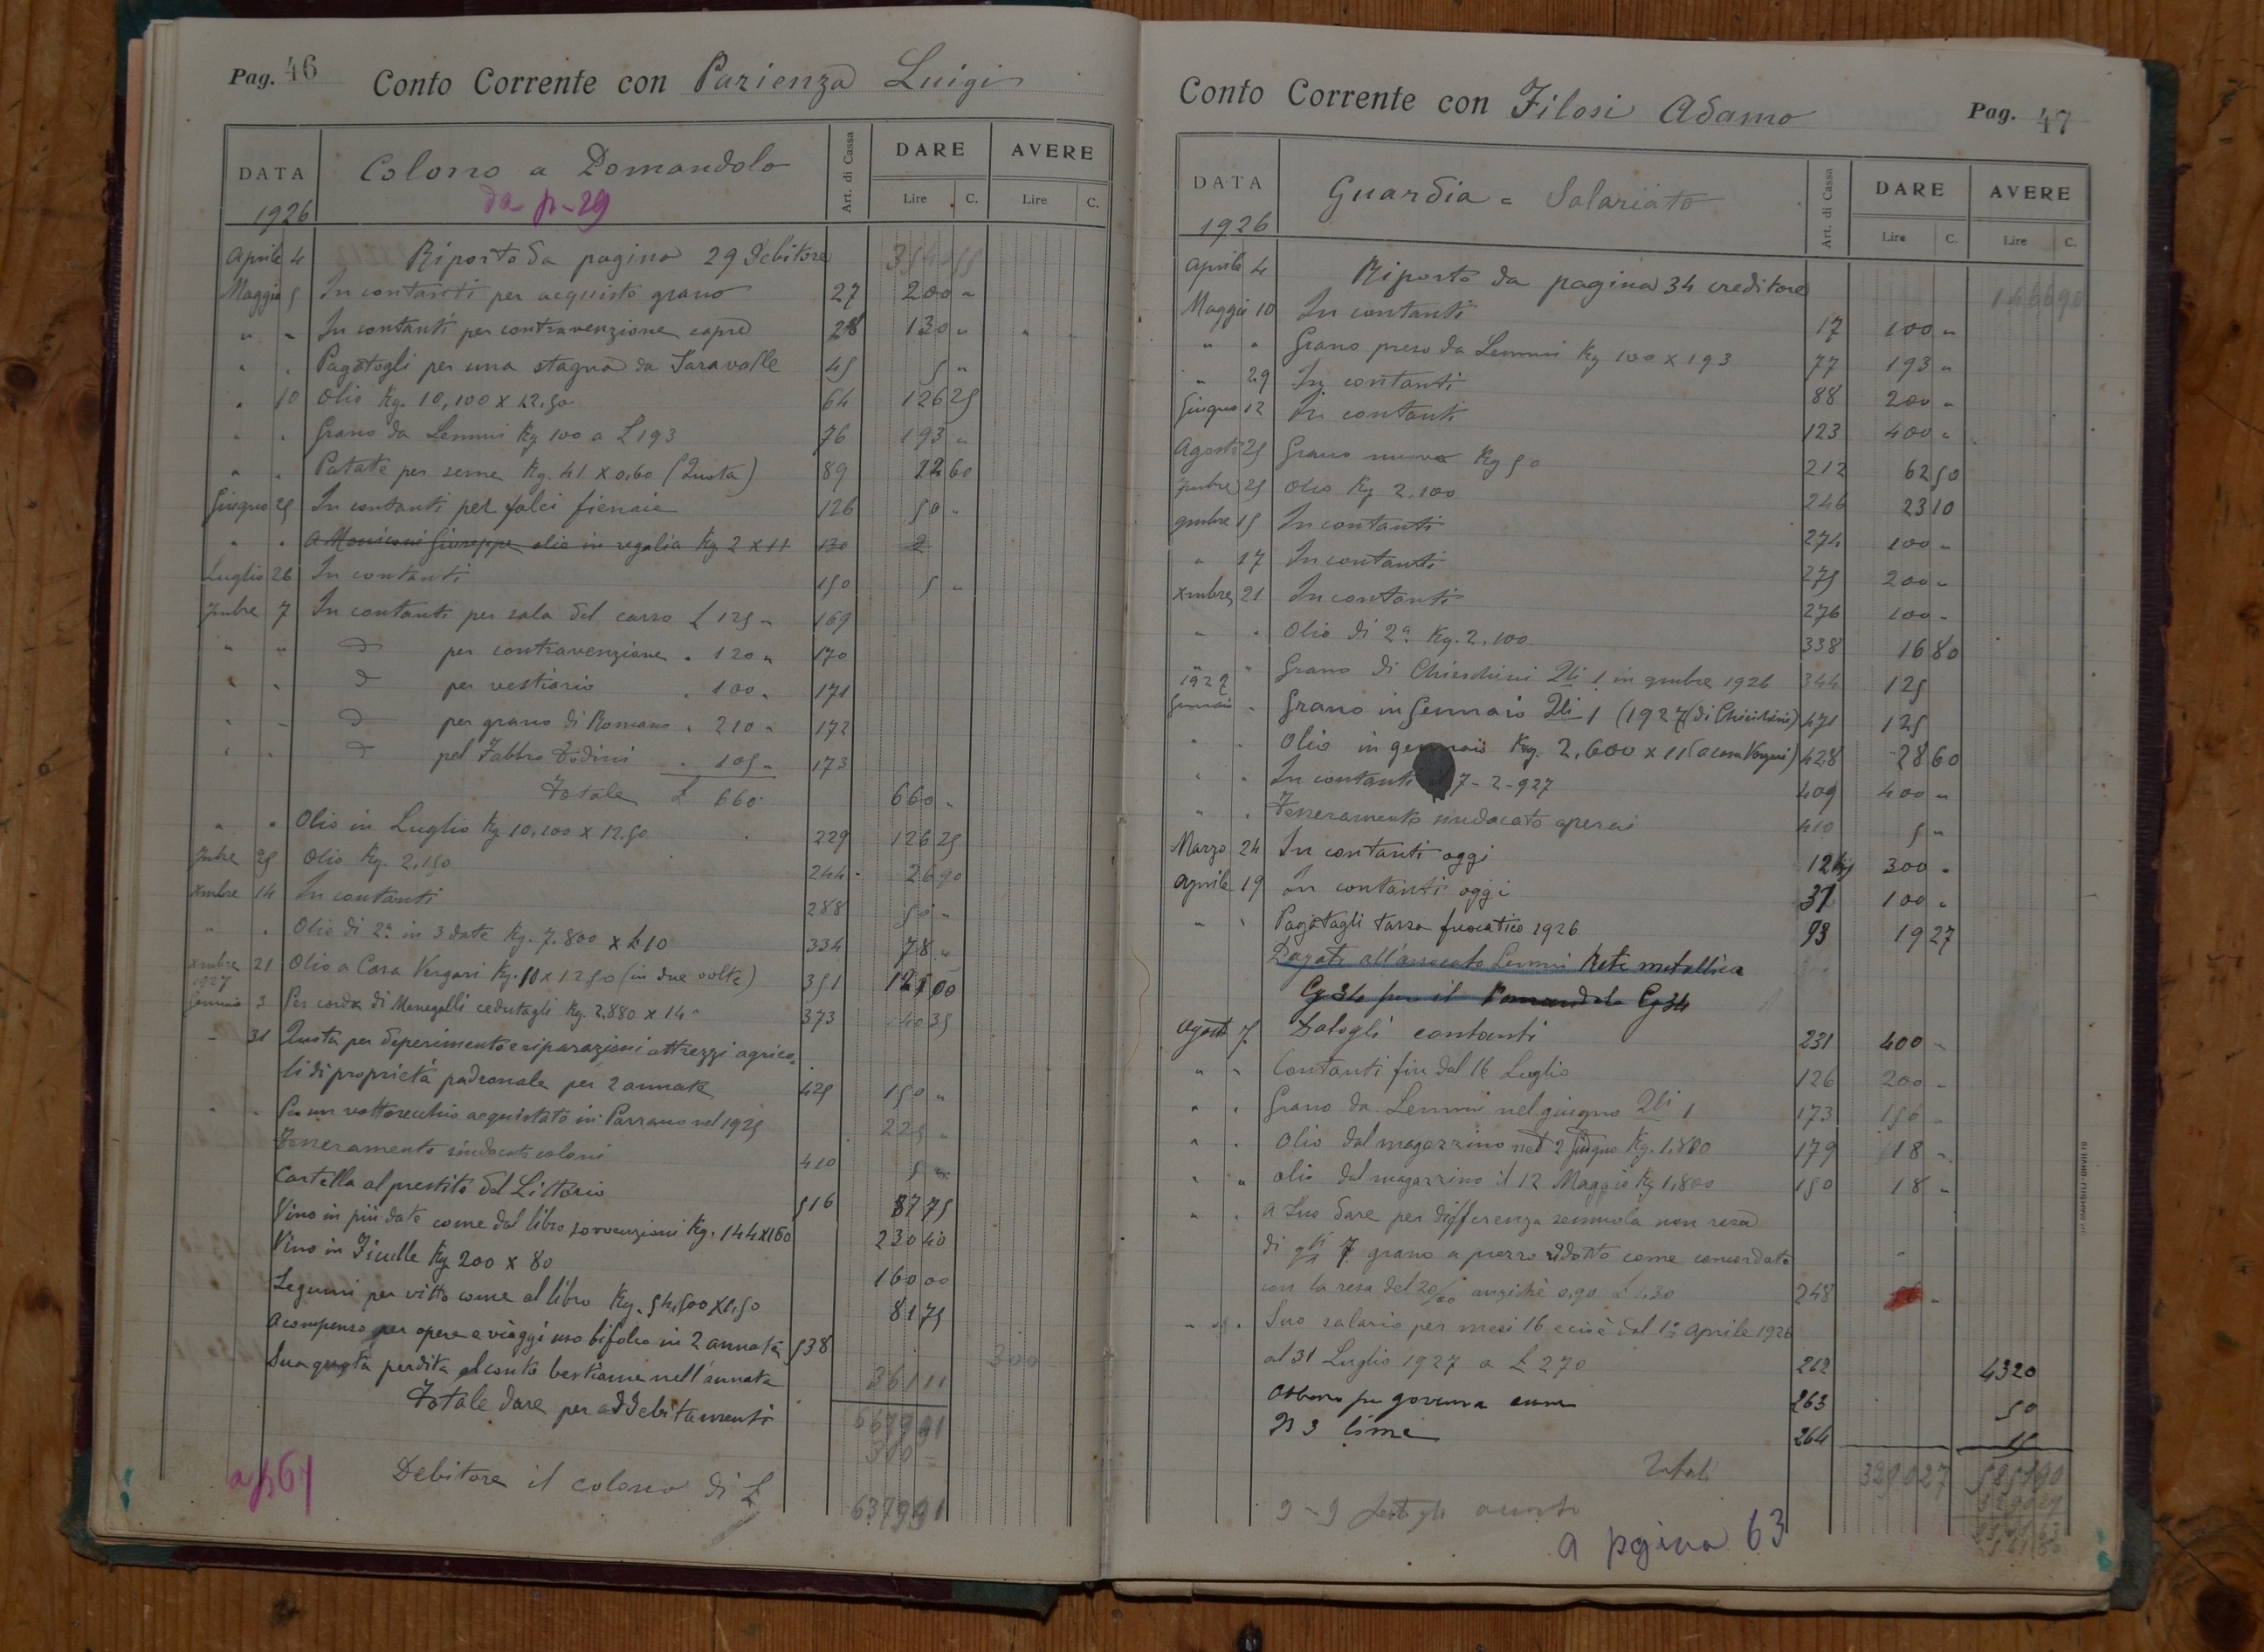 Pag. 46 Conto Corrente con Parienza Luigi
DATA Colono a Pomandolo Art. di Cassa DARE AVERE
1926 da p-29 Lire C. Lire C.
Aprile 4 Riporto da pagina 29 debitore
Maggio 5 In contanti per acquisto grano 27 200 "
" " In contanti per contravenzione capre 28 130 "
" " Pagatogli per una stagna da Saravalle 45 5 "
" 10 Olio Kg. 10,100 x 12.50 64 126 25
" " Grano da Lemmi Kg 100 a £ 193 76 193 "
" " Patate per seme Kg. 41 x 0,60 (Quota) 89 60
Giugno 25 In contanti per falci fienaie 126 50 "
" " a Giuseppe olio in regalia Kg 2 x 11 130 2
Luglio 26 In contanti 150 5 "
7mbre 7 In contanti per sala del carro £ 125 " 169
" " D per contravenzione " 120 " 170
" " D per vestiario " 100 " 171
" " D per grano di Romano " 210 " 172
" " D pel Fabbro Todini " 105 " 173
Totale £ 660 660 "
" " Olio in Luglio Kg 10,100 x 12.50 229 126 25
7mbre 25 Olio Kg. 2,150 244 26 90
Xmbre 14 In contanti 288 50 "
" " Olio di 2ª in 3 date Kg. 7.800 x £ 10 334 78 "
Xmbre 21 Olio a Casa Vergari Kg. 10 x 12.50 (in due volte) 351 00
1927
Gennaio 3 Per corda di Menegalli cedutagli Kg. 2.880 x 14 " 373 40 35
" 31 Quota per deperimento e riparazioni attrezzi agrico=
li di proprietà padronale per 2 annate 425 150 "
" " Per un vottorecchio acquistato in Parrano nel 1925 225 "
Tesseramento sindacati coloni 410 5 "
Cartella al prestito del Littorio 516 87 75
Vino in più date come dal libro sovvenzioni Kg. 144 x 160 230 40
Vino in Ficulle Kg 200 x 80 160 00
Legumi per vitto come al libro Kg. 54,500 x 1,50 81 75
A compenso per opere a viaggi uso bifolco in 2 annate 538 300
Sua quota perdita al conto bestiame nell'annata 361 11
Totale dare per addebitamenti 6679 91
300 -
a p 61 Debitore il colono di £ 6379 91
Conto Corrente con Filosi Adamo Pag. 47
DATA Guardia = Salariato Art. di Cassa DARE AVERE
1926 Lire C. Lire C.
Aprile 4 Riporto da pagina 34 creditore 1466 90
Maggio 10 In contanti 17 100 "
" " Grano preso da Lemmi Kg 100 x 193 77 193 "
" 29 In contanti 88 200 "
Giugno 12 In contanti 123 400 "
Agosto 25 Grano nuovo Kg 50 212 62 50
7mbre 25 Olio Kg 2.100 246 23 10
9mbre 15 In contanti 274 100 "
" 17 In contanti 275 200 "
Xmbre 21 In contanti 276 100 "
" " Olio di 2ª Kg. 2.100 338 16 80
" " Grano di Chieschini Qli 1 in 9mbre 1926 344 125
1927
Gennaio " Grano in Gennaio Qli 1 (1927 (di Chieschini) 471 125
" " Olio in gennaio Kg. 2,600 x 11 (a casa Vergari) 428 28 60
" " In contanti 7-2-927 409 400 "
" " Tesseramento sindacato operai 410 5 "
Marzo 24 In contanti oggi 300 "
Aprile 19 In contanti oggi 31 100 "
" " Pagatagli tassa fuocatico 1926 93 19 27
Pagate all'avvocato Lemmi Rete metallica
Cg 34 per il Pomandolo Cg 34
Agosto 7 Datogli contanti 231 400 "
" " Contanti fin dal 16 Luglio 126 200 "
" " Grano da Lemmi nel giugno Qli 1 173 156 "
" " Olio dal magazzino nel 2 Giugno Kg. 1.800 179 18 "
" " Olio dal magazzino il 12 Maggio Kg 1,800 150 18 "
" " A suo dare per differenza semola non resa
di 7 grano a prezzo ridotto come concordato
con la resa del 20/00 anzichè 0,90 £ 1.30 248
" " Suo salario per mesi 16 e cioè dal 1° Aprile 1926
al 31 Luglio 1927 a £ 270 262 4320
per governa 263 50
N 3 lime 264 15
Totali 3290 27 90
9-9
a pgina 63